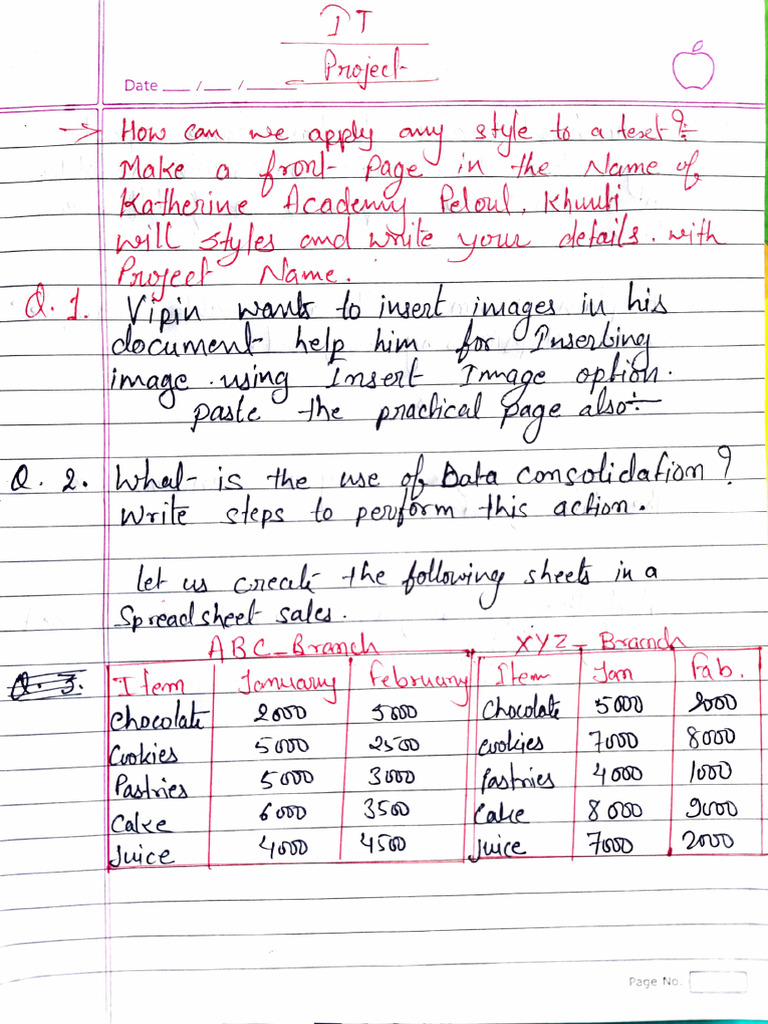 IT
Project
Date ___ / ___ / ______
→ How can we apply any style to a text?
Make a front Page in the Name of
Katherine Academy Peloul, Khunti
will styles and write your details. with
Project Name.
Q. 1. Vipin wants to insert images in his
document help him for Inserting
image using Insert Image option.
paste the practical page also:-
Q. 2. What is the use of Data consolidation?
Write steps to perform this action.
let us create the following sheets in a
Spreadsheet sales.
ABC_Branch XYZ_Branch
Q. 3. Item January February Item Jan Fab.
Chocolate 2000 5000 Chocolate 5000 2000
Cookies 5000 2500 Cookies 7000 8000
Pastries 5000 3000 Pastries 4000 1000
Cake 6000 3500 Cake 8000 9000
Juice 4000 4500 Juice 7000 2000
Page No.